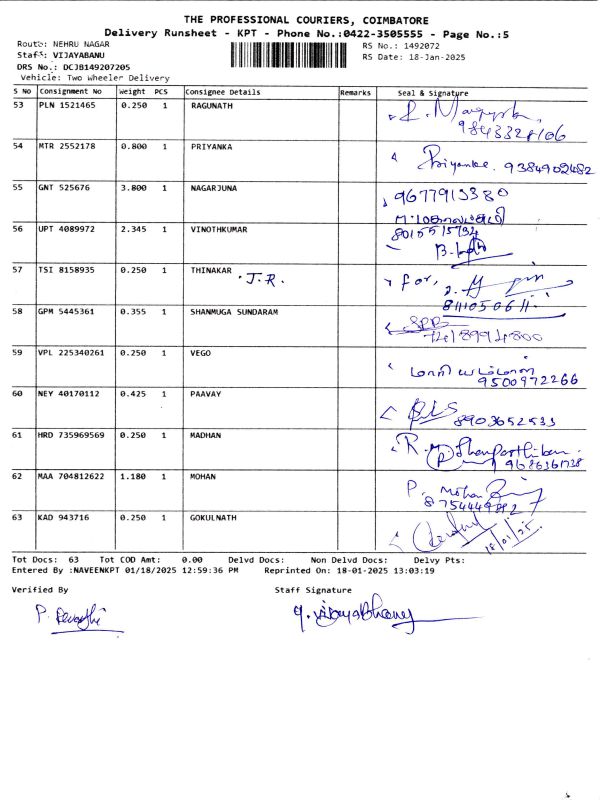 THE PROFESSIONAL COURIERS, COIMBATORE
Delivery Runsheet - KPT - Phone No.:0422-3505555 - Page No.:5
Route: NEHRU NAGAR
RS No.: 1492072
Staff: VIJAYABANU
RS Date: 18-Jan-2025
DRS No.: DCJB149207205
Vehicle: Two Wheeler Delivery
S No Consignment No Weight PCS Consignee Details Remarks Seal & Signature
53 PLN 1521465 0.250 1 RAGUNATH
54 MTR 2552178 0.800 1 PRIYANKA
Priyanka. 9384902482
55 GNT 525676 3.800 1 NAGARJUNA
9677913380
56 UPT 4089972 2.345 1 VINOTHKUMAR
8015515794
57 TSI 8158935 0.250 1 THINAKAR
J.R.
for,
8111050611
58 GPM 5445361 0.355 1 SHANMUGA SUNDARAM
59 VPL 225340261 0.250 1 VEGO
9500972266
60 NEY 40170112 0.425 1 PAAVAY
8903652533
61 HRD 735969569 0.250 1 MADHAN
62 MAA 704812622 1.180 1 MOHAN
P. Mohan
63 KAD 943716 0.250 1 GOKULNATH
18/01/25
Tot Docs: 63 Tot COD Amt: 0.00 Delvd Docs: Non Delvd Docs: Delvy Pts:
Entered By :NAVEENKPT 01/18/2025 12:59:36 PM Reprinted On: 18-01-2025 13:03:19
Verified By
Staff Signature